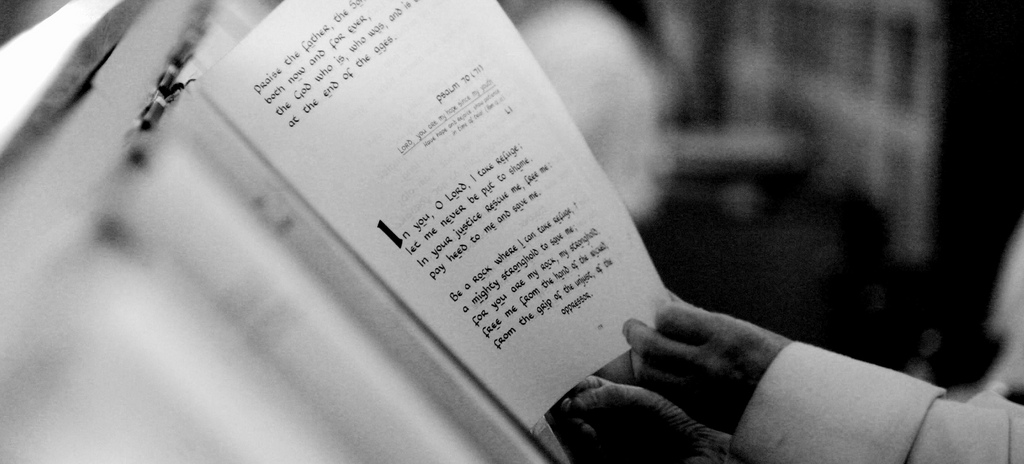 Praise the Father, the Son,
both now and for ever,
the God who is, who was, and is
at the end of the ages.
PSALM 70 (71)
LORD, you are my hope since my youth
In you, O LORD, I take refuge;
let me never be put to shame.
In your justice rescue me, free me:
pay heed to me and save me.
Be a rock where I can take refuge,
a mighty stronghold to save me;
for you are my rock, my stronghold.
Free me from the hand of the wicked,
from the grip of the unjust, of the
oppressor.